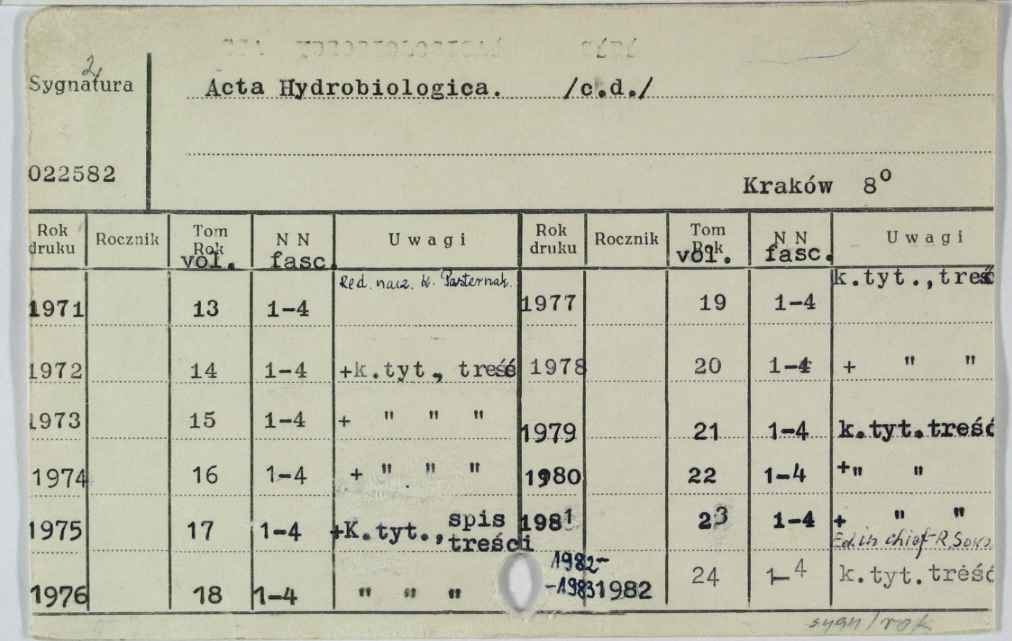 2
Sygnatura Acta Hydrobiologica. /c.d./
022582
Kraków 8°
Rok druku Rocznik Tom Rok vol. NN fasc. Uwagi Rok druku Rocznik Tom Rok vol. NN fasc. Uwagi
1971 13 1-4 Red. nacz. K. Pasternak. 1977 19 1-4 k.tyt.,treś
1972 14 1-4 +k.tyt., treść 1978 20 1-4 + " "
1973 15 1-4 + " " " 1979 21 1-4 k.tyt.treść
1974 16 1-4 + " " " 1980 22 1-4 +" "
1975 17 1-4 +K.tyt., spis treści 1981 23 1-4 + " "
Ed in chief R.
1976 18 1-4 " " " 1982-
-1983 1982 24 1-4 k.tyt.treść
sygn/rok